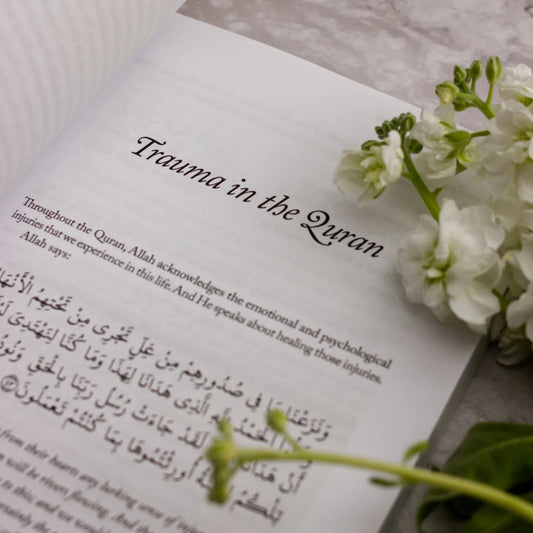 Trauma in the Quran
Throughout the Quran, Allah acknowledges the emotional and psychological
injuries that we experience in this life. And He speaks about healing those injuries.
Allah says:
وَنَزَعْنَا مَا فِى صُدُورِهِمْ مِنْ غِلٍّ تَجْرِى مِنْ تَحْتِهِمُ
الْحَمْدُ لِلَّهِ الَّذِى هَدَانَا لِهَذَا وَمَا كُنَّا لِنَهْتَدِىَ
أَنْ هَدَانَا لَقَدْ جَاءَتْ رُسُلُ رَبِّنَا بِالْحَقِّ
تِلْكُمُ أُورِثْتُمُوهَا بِمَا كُنْتُمْ تَعْمَلُونَ
from their hearts any lurking sense of
will be rivers flowing. And
to this; and we would